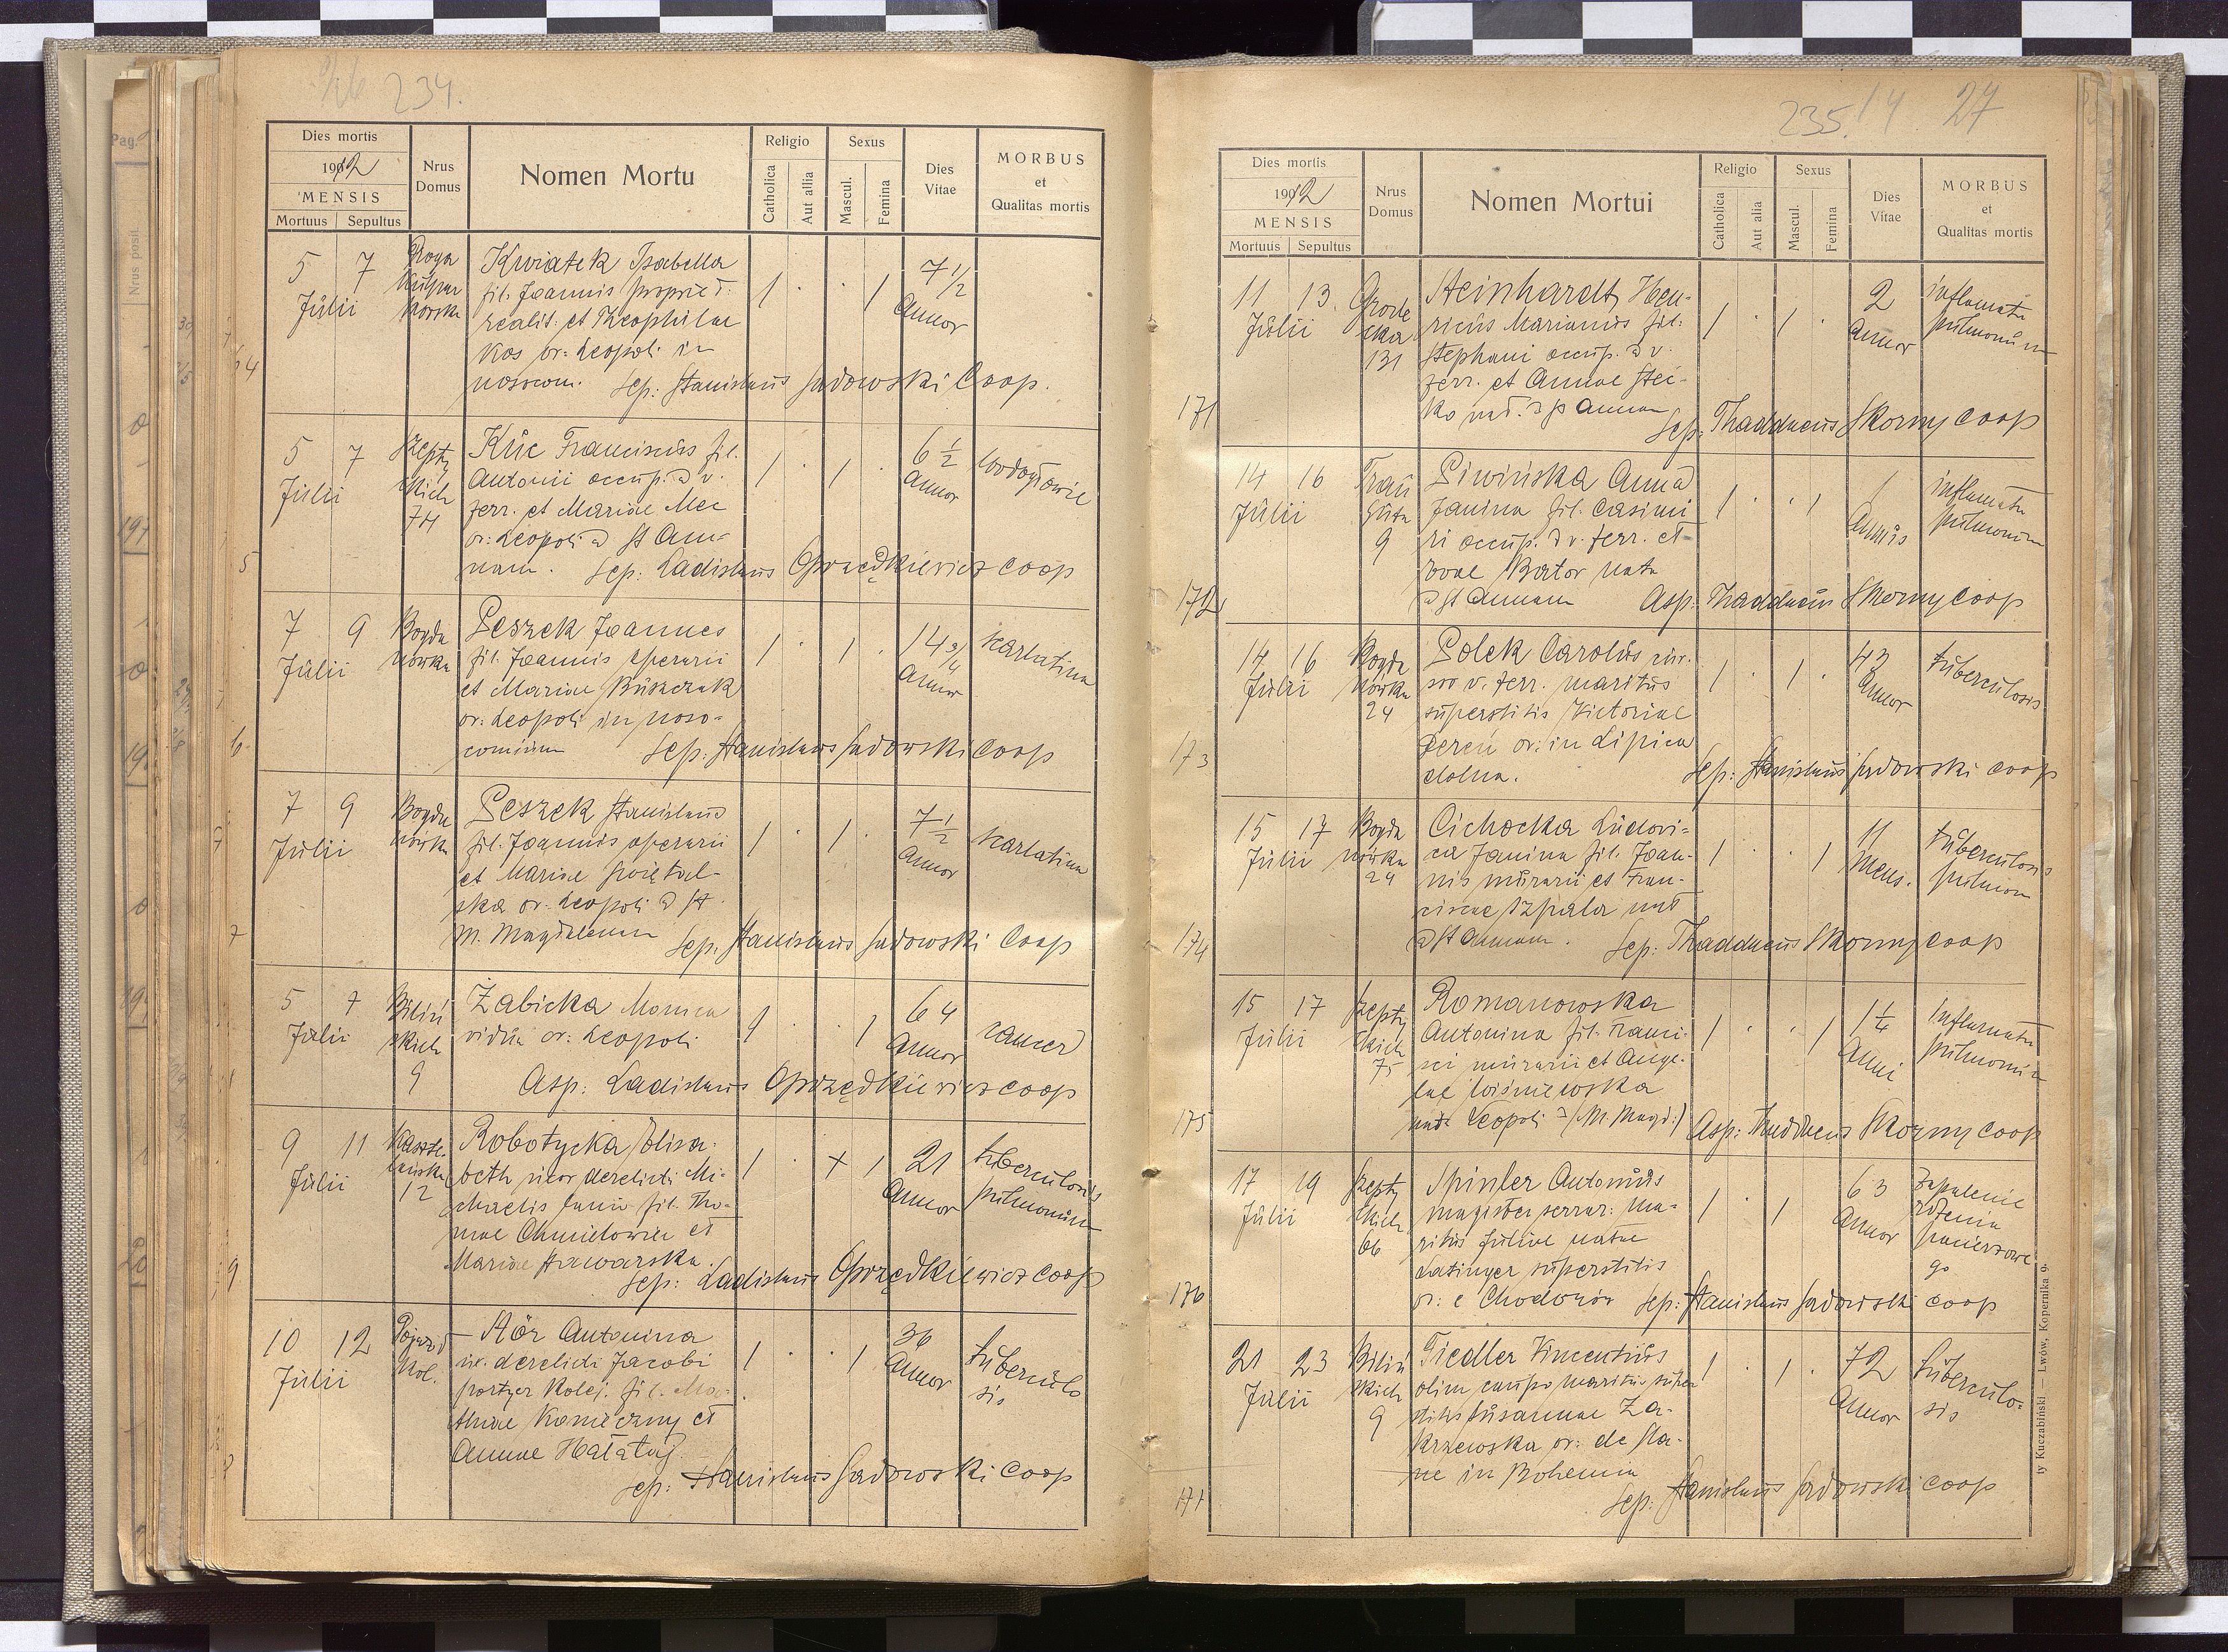 234.
Dies mortis
1912
MENSIS
Mortuus Sepultus
Nrus Domus
Nomen Mortu
Religio
Catholica
Aut alia
Sexus
Mascul.
Femina
Dies Vitae
MORBUS
et
Qualitas mortis
5 7
Julii
Kwiatek Isabella
fil. Joannis propried.
realit. et Theophilae
Kos or: Leopoli in
nosocom. Sep: Stanislaus Sadowski Coop.
1 1
7 1/2
Annor
5 7
Julii
Szepty
ckich
74
Kuc Franciscus fil.
Antonii occup. a v.
ferr. et Mariae Mec
or: Leopoli a St An-
nam. Sep: Ladislaus Oprzędkiewicz coop
1 1
6 1/2
Annor
wodogłowie
7 9
Julii
Bogda
nówka
Peszek Joannes
fil. Joannis operarii
et Mariae
or: Leopoli in noso-
comium Sep: Stanislaus Sadowski coop
1 1
14 3/4
Annor
scarlatina
7 9
Julii
Bogda
nówka
Peszek Stanislaus
fil. Joannis operarii
et Mariae Świętal-
ska or: Leopoli a St
M. Magdalenam Sep. Stanislaus Sadowski Coop
1 1
7 1/2
Annor
scarlatina
5 7
Julii
Biliń
skich
9
Żabicka Monica
vidua or: Leopoli
Asp: Ladislaus Oprzędkiewicz coop
1 1
64
Annor
cancer
9 11
Julii
12
Robotycka Elisa-
beth uxor derelicti Mi-
chaelis fil. Tho-
mae Chmielowiec et
Mariae
Sep: Ladislaus Oprzędkiewicz coop
1 x 1
21
Annor
tuberculosis
pulmonum
10 12
Julii
Kol.
Antonina
ux. derelicti Jacobi
portyer kolej. fil. Ma-
thiae Konieczny et
Annae
Sep: Stanislaus Sadowski Coop
1 1
36
Annor
tuberculo
sis
235. 14 27
Dies mortis
1912
MENSIS
Mortuus Sepultus
Nrus Domus
Nomen Mortui
Religio
Catholica
Aut alia
Sexus
Mascul.
Femina
Dies Vitae
MORBUS
et
Qualitas mortis
171
11 13
Julii
Grode
cka
131
Steinhardt Hen-
ricus Marianus fil.
Stephani occup. a v.
ferr. et Annae Stec-
ko nat. a St Annam
Sep: Thaddaeus Skorny coop
1 1
2
Annor
inflamatio
pulmonum
172
14 16
Julii
Trau
guta
9
Piwińska Anna
Janina fil. Casimi
ri occup. a v. ferr. et
Evae Bator nata
a St Annam Asp: Thaddaeus Skorny coop
1 1
1
Annus
inflamatio
pulmonum
173
14 16
Julii
Bogda
nówka
24
Polek Carolus
v. ferr. maritus
superstitis Victoriae
or: in Lipica
dolna. Sep: Stanislaus Sadowski coop
1 1
43
Annor
tuberculosis
174
15 17
Julii
Bogda
nówka
24
Cichocka Ludovi-
ca Janina fil. Joan-
nis murarii et Fran-
ciscae Szpala nat
a St Annam. Sep: Thaddaeus Skorny coop
1 1
11
Mens.
tuberculosis
pulmon
175
15 17
Julii
Szepty
ckich
75
Romanowska
Antonina fil. Franci-
sci murarii et Ange-
lae Wiśniewska
nata Leopoli a (M. Magd.) Asp: Thaddaeus Skorny coop
1 1
1 1/4
Anni
inflamatio
pulmonum
176
17 19
Julii
Szepty
ckich
66
Spinler Antonius
magister serrar: ma-
ritus Juliae natae
Latinger superstitis
or: e Chodorów Sep: Stanislaus Sadowski coop
1 1
63
Annor
Zapalenie
rdzenia
pacierzowe
go
177
21 23
Julii
Biliń
skich
9
Fiedler Vincentius
olim caupo maritus super
stitis Susannae Za-
krzewska or: de Sla-
ne in Bohemia
Sep: Stanislaus Sadowski coop
1 1
72
Annor
tuberculo-
sis
ty Kuczabiński — Lwów, Kopernika 9.